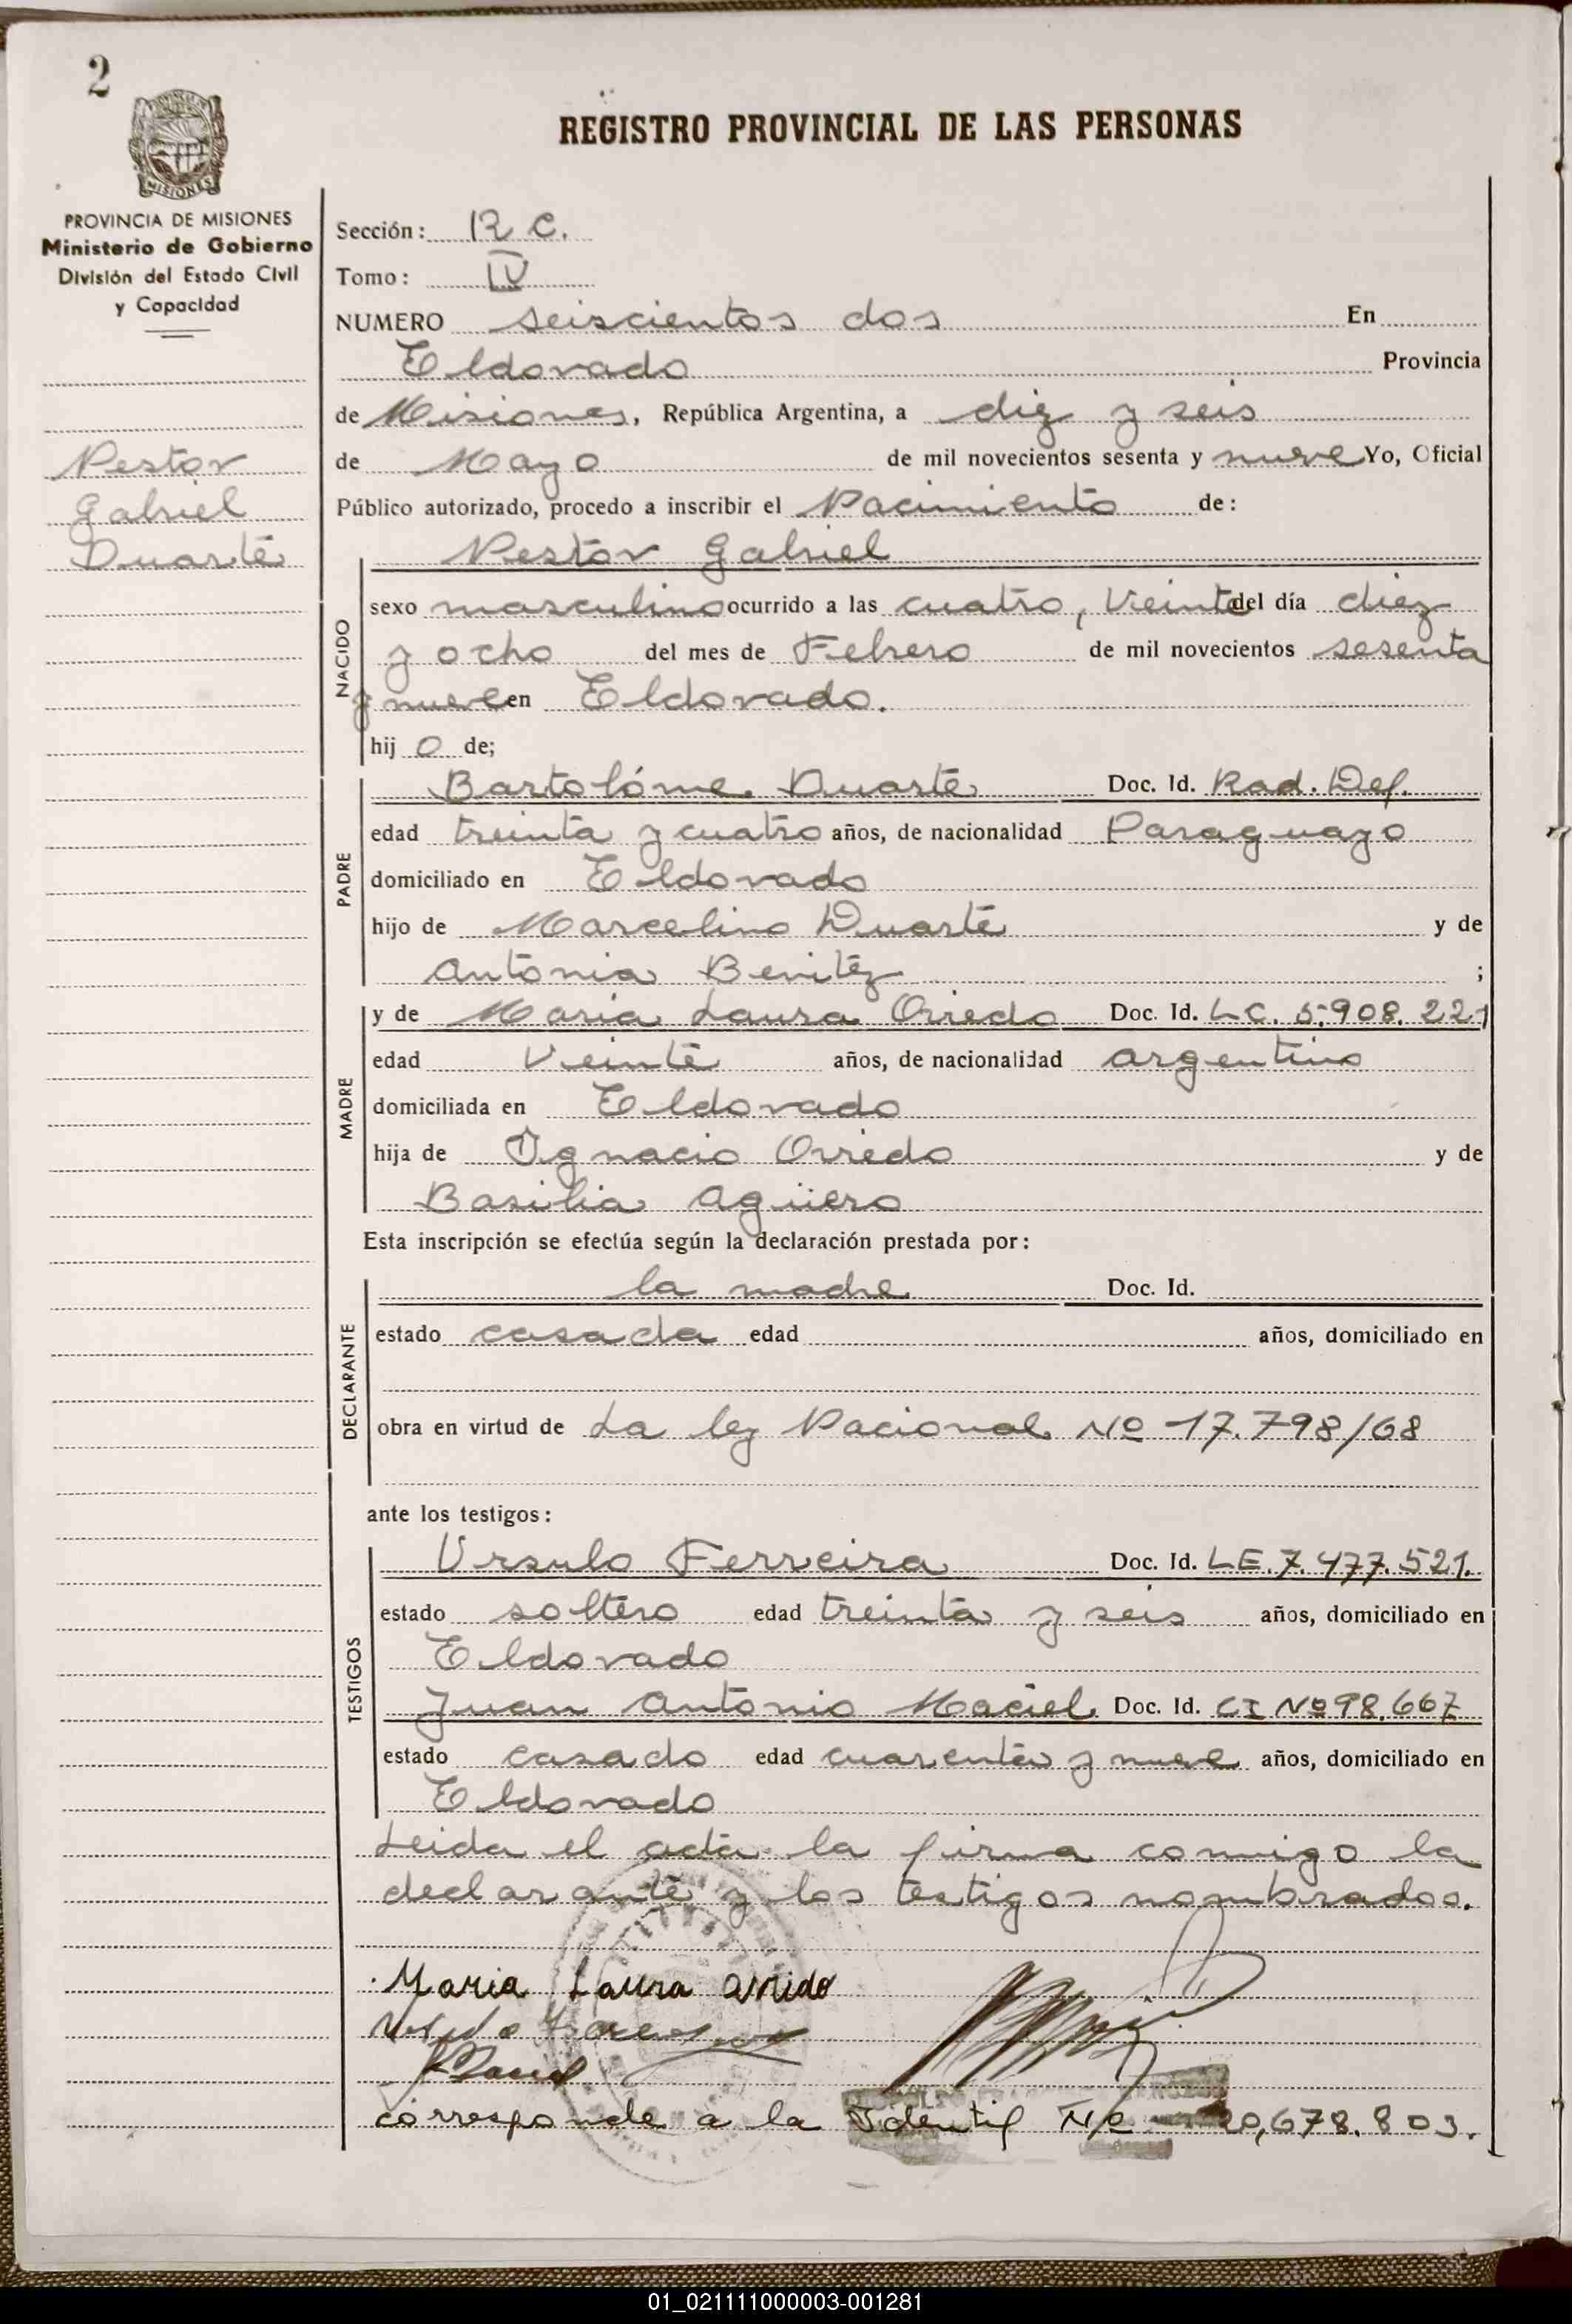 2
PROVINCIA DE MISIONES
MISIONES
PROVINCIA DE MISIONES
Ministerio de Gobierno
División del Estado Civil
y Capacidad
Nestor
Gabriel
Duarte
REGISTRO PROVINCIAL DE LAS PERSONAS
Sección: R C.
Tomo: IV
NUMERO seiscientos dos En
Eldorado Provincia
de Misiones, República Argentina, a diez y seis
de Mayo de mil novecientos sesenta y nueve Yo, Oficial
Público autorizado, procedo a inscribir el Nacimiento de:
Nestor Gabriel
NACIDO
sexo masculino ocurrido a las cuatro, veinte del día diez
y ocho del mes de Febrero de mil novecientos sesenta
y nueve en Eldorado.
hij o de;
PADRE
Bartolóme Duarte Doc. Id. Rad. Def.
edad treinta y cuatro años, de nacionalidad Paraguayo
domiciliado en Eldorado
hijo de Marcelino Duarte y de
Antonia Benitez ;
MADRE
y de Maria Laura Oviedo Doc. Id. LC. 5.908.221
edad Veinte años, de nacionalidad argentina
domiciliada en Eldorado
hija de Ignacio Oviedo y de
Basilia Agüero
Esta inscripción se efectúa según la declaración prestada por:
DECLARANTE
la madre Doc. Id.
estado casada edad años, domiciliado en
obra en virtud de La ley Nacional Nº 17.798/68
ante los testigos:
TESTIGOS
Ursulo Ferreira Doc. Id. LE.7.477.521.
estado soltero edad treinta y seis años, domiciliado en
Eldorado
Juan Antonio Maciel Doc. Id. CI Nº 98.667
estado casado edad cuarenta y nueve años, domiciliado en
Eldorado
Leida el acta la firma conmigo la
declarante y los testigos nombrados.
Maria Laura Ovido
corresponde a la Identif Nº 20,678.803.
01_021111000003-001281